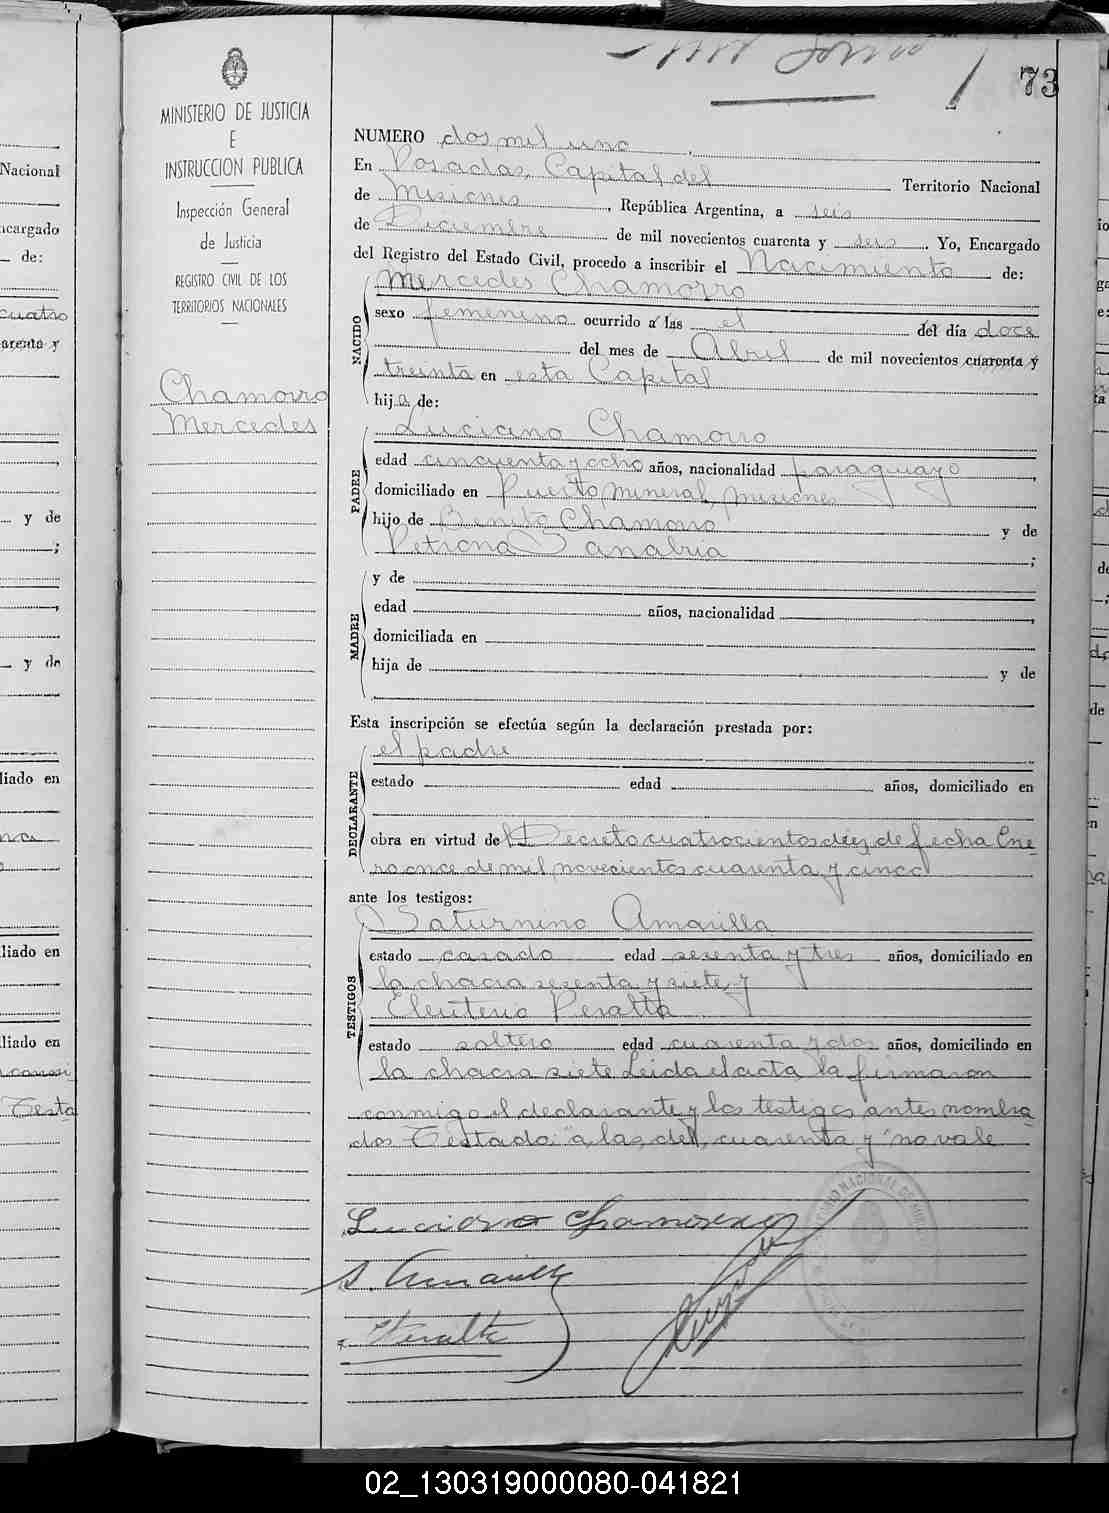 73
MINISTERIO DE JUSTICIA
E
INSTRUCCION PUBLICA
Inspección General
de Justicia
REGISTRO CIVIL DE LOS
TERRITORIOS NACIONALES
Chamorro
Mercedes
NUMERO dos mil uno
En Posadas, Capital del Territorio Nacional
de Misiones, República Argentina, a seis
de Diciembre de mil novecientos cuarenta y seis. Yo, Encargado
del Registro del Estado Civil, procedo a inscribir el Nacimiento de:
NACIDO
Mercedes Chamorro
sexo femenino ocurrido a las el del día doce
del mes de Abril de mil novecientos cuarenta y
treinta en esta Capital
hija de:
PADRE
Luciano Chamorro
edad cincuenta y ocho años, nacionalidad paraguayo
domiciliado en Puerto Mineral, Misiones
hijo de Benito Chamorro y de
Petrona Sanabria;
MADRE
y de
edad años, nacionalidad
domiciliada en
hija de y de
Esta inscripción se efectúa según la declaración prestada por:
DECLARANTE
el padre
estado edad años, domiciliado en
obra en virtud del Decreto cuatrocientos diez de fecha Ene
ro once de mil novecientos cuarenta y cinco
ante los testigos:
TESTIGOS
Saturnino Amarilla
estado casado edad sesenta y tres años, domiciliado en
la chacra sesenta y siete y
Eleuterio Peralta
estado soltero edad cuarenta y dos años, domiciliado en
la chacra siete Leida el acta la firmaron
conmigo el declarante y los testigos antes nombra
dos Testado: "a las, del, cuarenta y" no vale
Luciano Chamorro
S. Amarilla
Peralta
Nacional
ncargado
de:
cuatro
arenta y
y de
;
y de
liado en
liado en
liado en
Testa
02_130319000080-041821